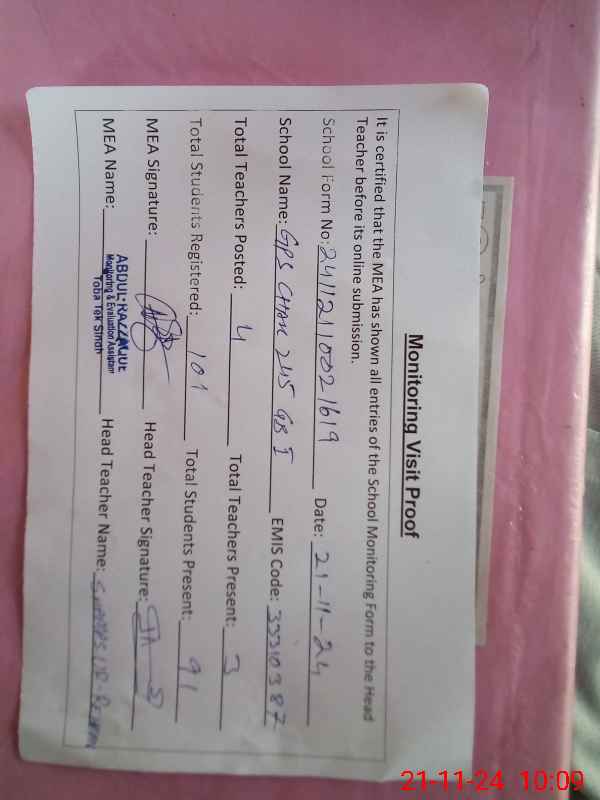 Monitoring Visit Proof
It is certified that the MEA has shown all entries of the School Monitoring Form to the Head
Teacher before its online submission.
School Form No: 24112110021619 Date: 21-11-24
School Name: GPS CHAK 245 GB I EMIS Code: 33310387
Total Teachers Posted: 4 Total Teachers Present: 3
Total Students Registered: 101 Total Students Present: 91
MEA Signature: Head Teacher Signature:
MEA Name: ABDUL RAZZAQUE Head Teacher Name:
Monitoring & Evaluation Assistant
Toba Tek Singh
21-11-24 10:09